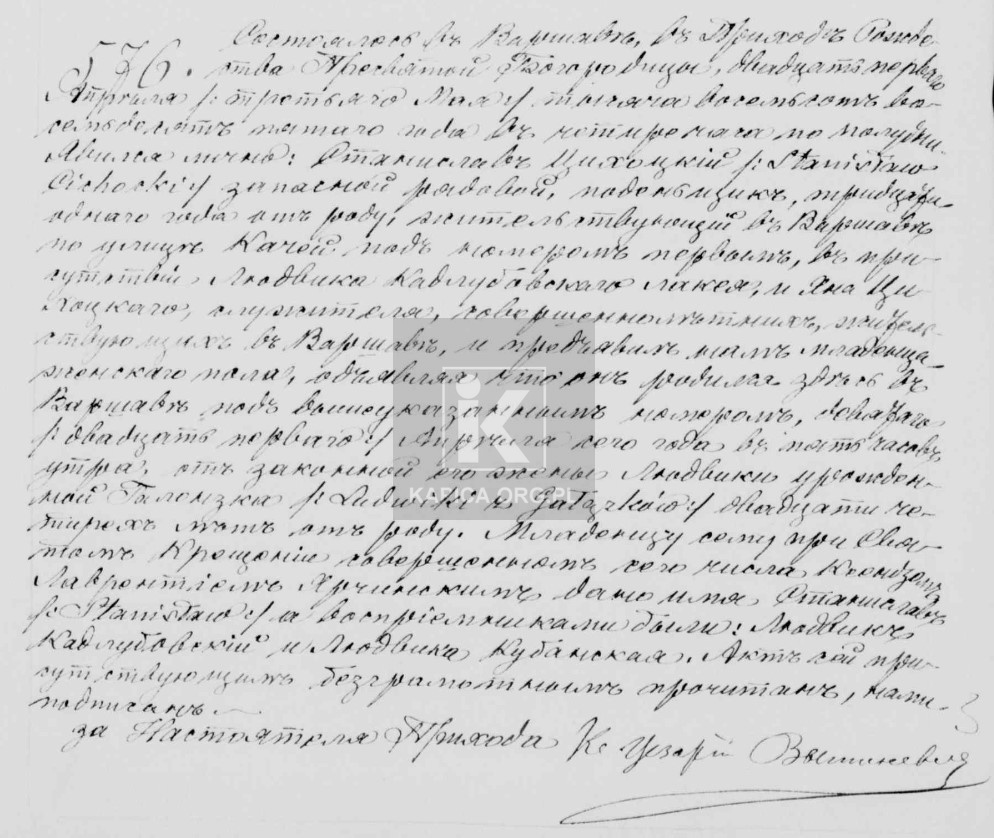 Состоялось въ Варшавѣ, въ Приходѣ Рожде-
536. ства Пресвятой Богородицы, двадцать перваго
Апрѣля /: третьяго Мая :/ тысяча восемьсотъ во-
семьдесятъ пятаго года въ четыре часа по полудни.
Явился лично: Станиславъ Цихоцкій /: Stanisław
Cichocki :/ запасной рядовой, поденьщикъ, тридцати
однаго года отъ роду, жительствующій въ Варшавѣ
по улицѣ Качей подъ номеромъ первымъ, въ при-
сутствіи Людвика Кадлубовскаго лакея, и Яна Ци-
хоцкаго, служителя, совершеннолѣтнихъ, житель-
ствующихъ въ Варшавѣ, и предъявилъ намъ младенца
женскаго пола, объявляя что онъ родился здѣсь въ
Варшавѣ подъ вышеуказаннымъ номеромъ, девятаго
/: двадцать перваго :/ Апрѣля сего года въ пять часовъ
утра, отъ законной его жены Людвики урожден-
ной Галонзка /: Ludwiki z Gałązków :/ двадцати че-
тырехъ лѣтъ отъ роду. Младенцу сему при Свя-
томъ Крещеніи совершенномъ сего числа Ксендзомъ
Лаврентіемъ дано имя Станиславъ
/: Stanisław :/ а воспріемниками были: Людвикъ
Кадлубовскій и Людвика Кубанская. Актъ сей при-
сутствующимъ безграмотнымъ прочитанъ, нами
подписанъ.
за Настоятеля Прихода Кс Цезарій
KAPICA.ORG.PL